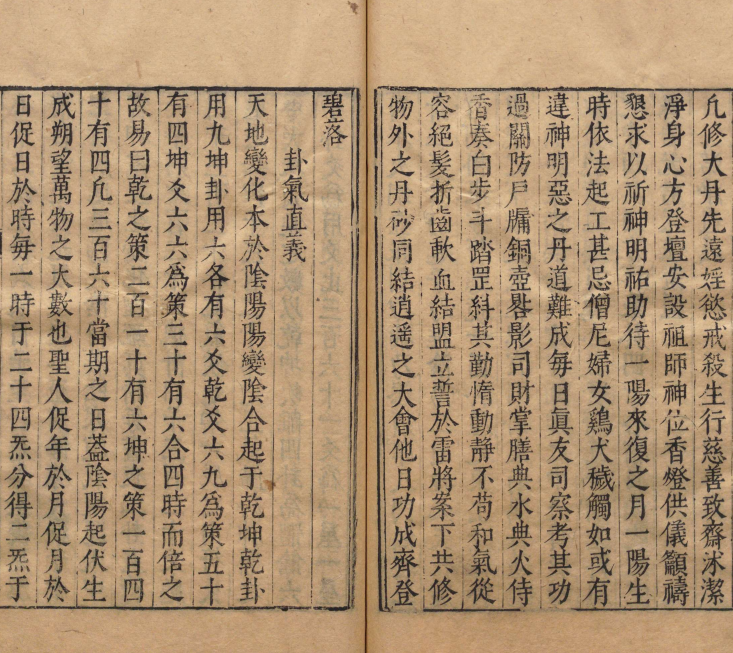 凢修大丹先遠婬慾戒殺生行慈善致齋沐潔
淨身心方登壇安設祖師神位香燈供儀籲禱
懇求以祈神明祐助待一陽來復之月一陽生
時依法起工甚忌僧尼婦女鷄犬穢觸如或有
違神明惡之丹道難成毎日眞友司察考其功
過關防戸牖銅壺晷影司財掌膳典水典火侍
香奏白步斗踏罡糾其勤惰動靜不苟和氣從
容絕髮折齒歃血結盟立誓於雷將案下共修
物外之丹砂同結逍遥之大會他日功成齊登
碧落
卦氣直義
天地變化本於陰陽陽變陰合起于乾坤乾卦
用九坤卦用六各有六爻乾爻六九爲策五十
有四坤爻六六爲策三十有六合四時而倍之
故易曰乾之策二百一十有六坤之策一百四
十有四凢三百六十當期之日葢陰陽起伏生
成朔望萬物之大數也聖人促年於月促月於
日促日於時毎一時于二十四炁分得二炁于